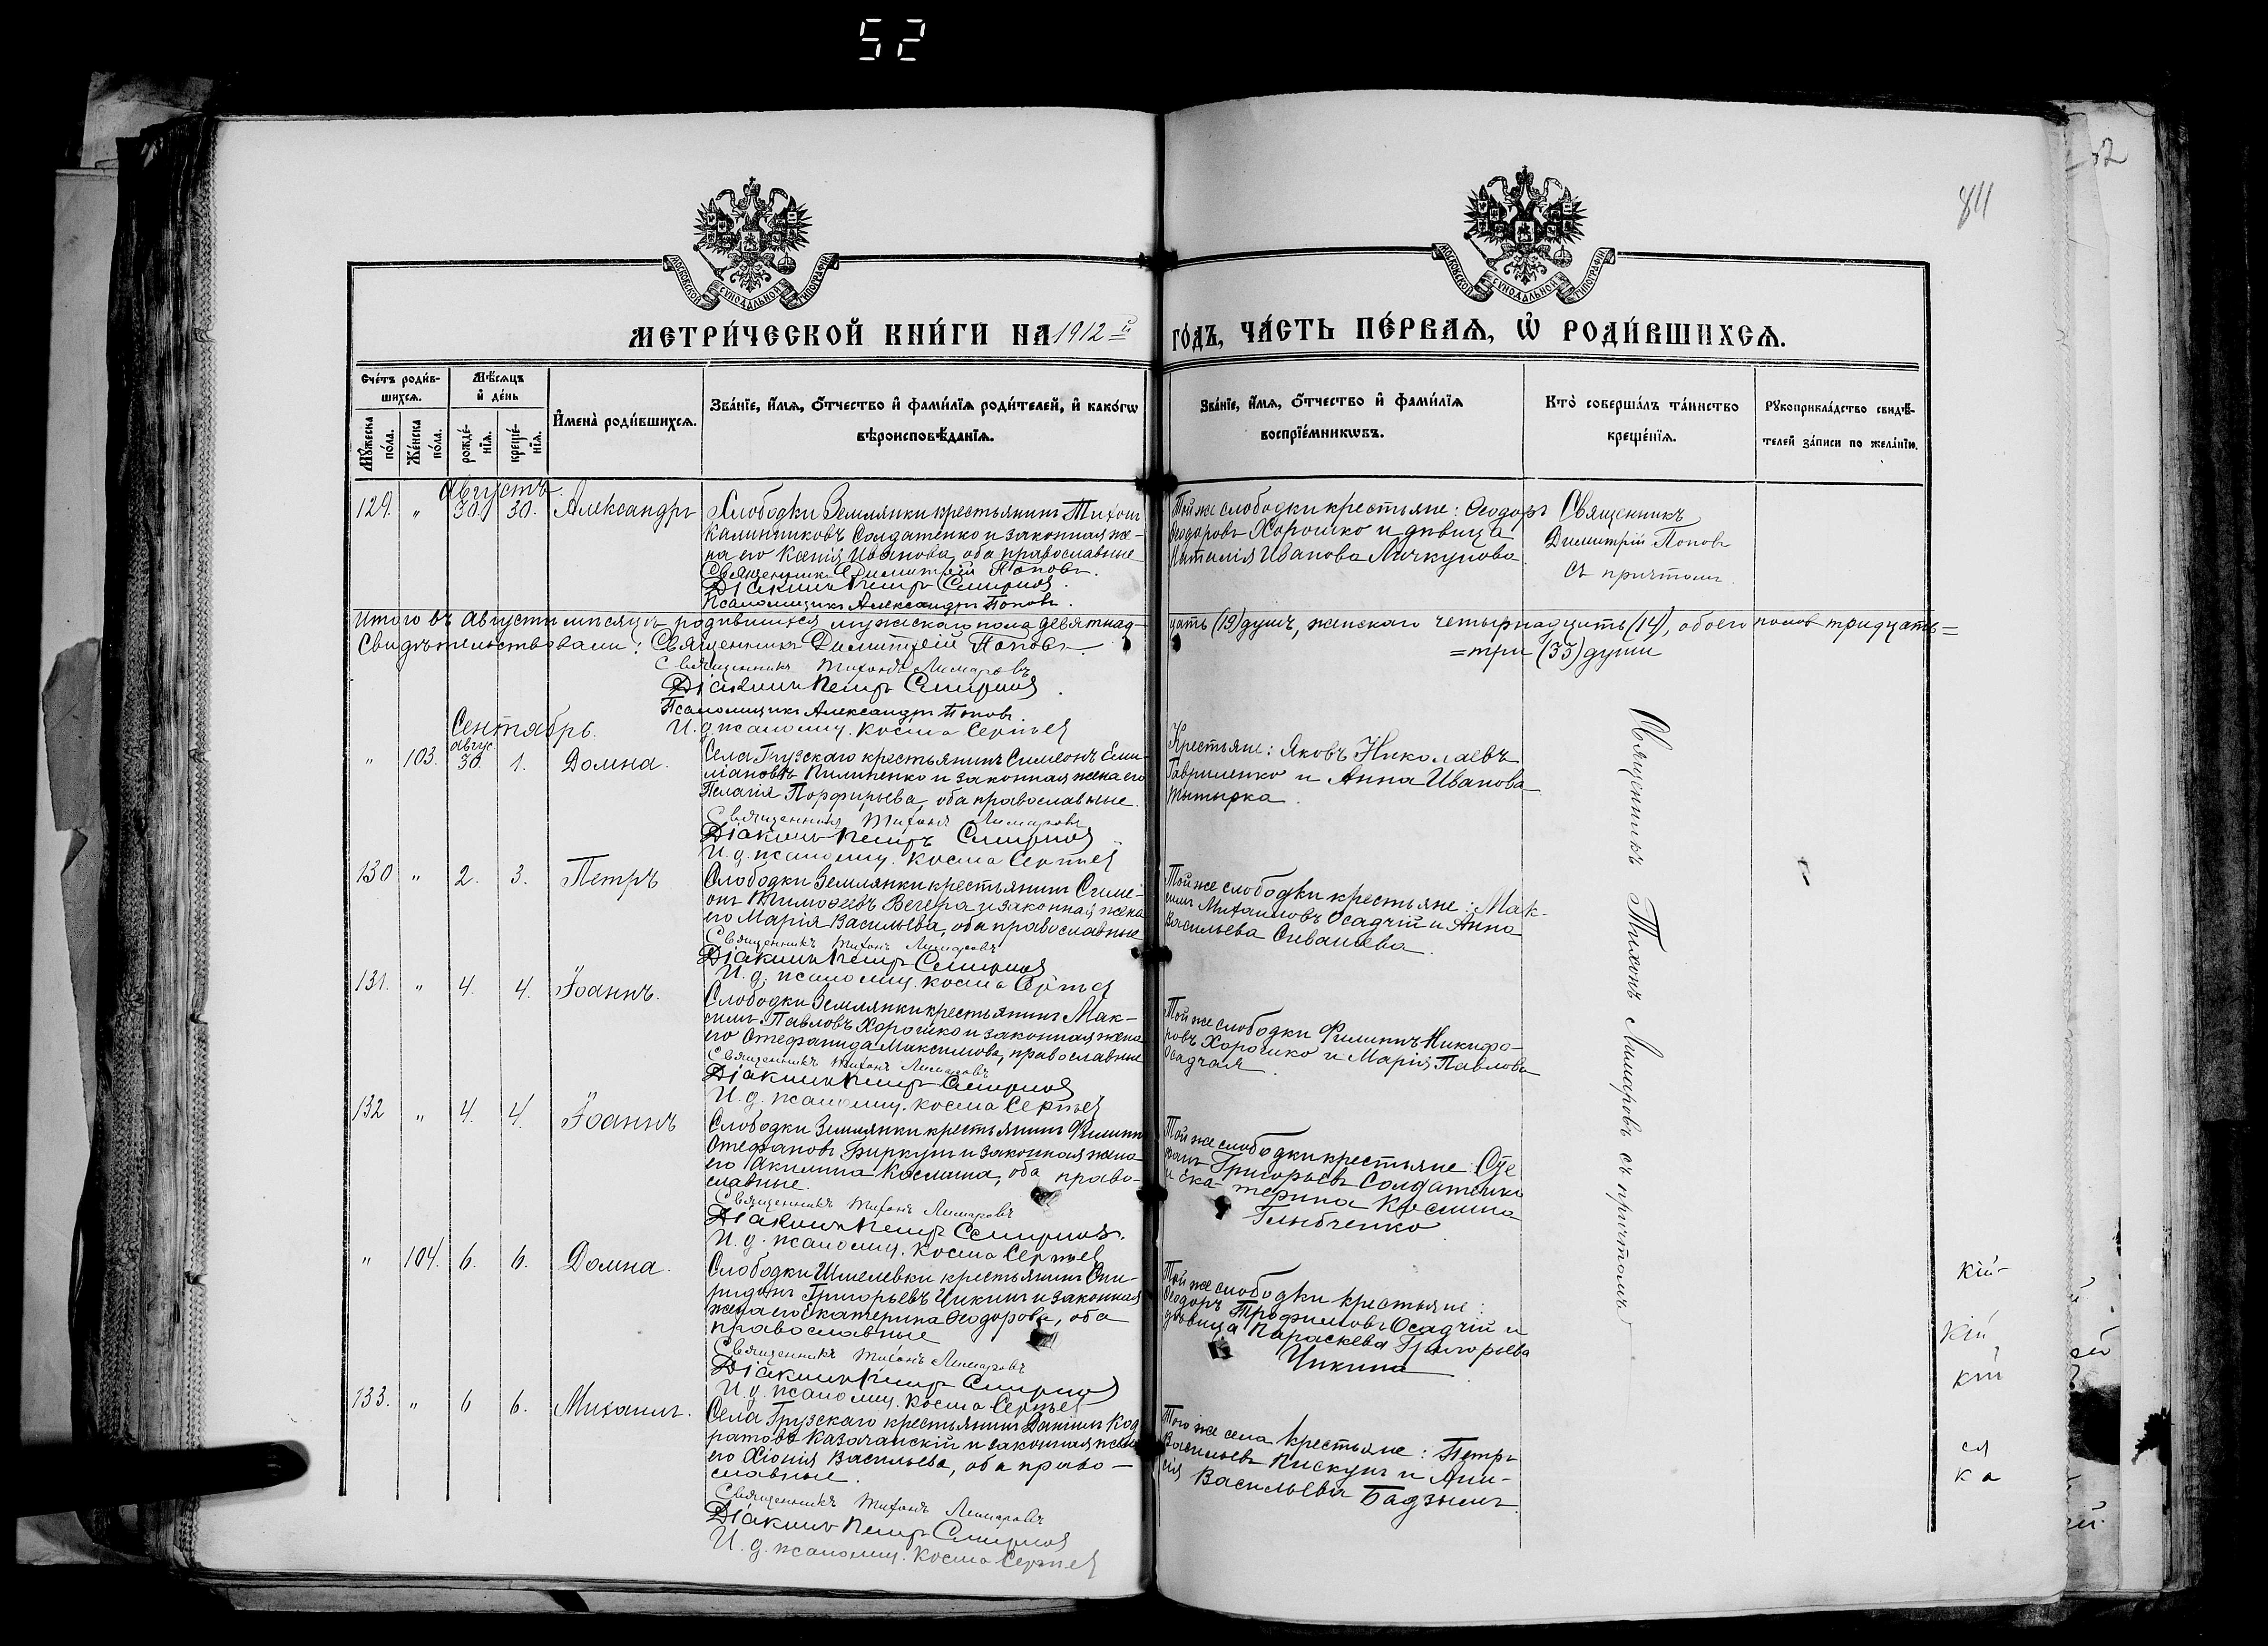 52
52
811
МОСКОВСКОЙ СѴНОДАЛЬНОЙ ТИПОГРАФІИ
МОСКОВСКОЙ СѴНОДАЛЬНОЙ ТИПОГРАФІИ
МЕТРИ́ЧЕСКОЙ КНИ́ГИ НА 1912й ГО́ДЪ, ЧА́СТЬ ПЕ́РВАѦ, Ѡ҆ РОДИ́ВШИХСѦ.
Сче́тъ роди́в-
шихсѧ.
Мꙋ́жеска по́ла.
Же́нска по́ла.
Мѣ́сѧцъ
и҆ де́нь
рожде́-
нїѧ.
креще́-
нїѧ.
И҆мена̀ роди́вшихсѧ.
Зва́нїе, и҆́мѧ, ѻ҆́тчество и҆ фами́лїѧ роди́телей, и҆ како́гѡ
вѣроисповѣ́данїѧ.
Зва́нїе, и҆́мѧ, ѻ҆́тчество и҆ фами́лїѧ
воспрїе́мникѡвъ.
Кто̀ соверша́лъ та́инство
креще́нїѧ.
Рꙋкоприкла́дство свидѣ́-
телей за́писи по жела́нїю.
Августъ.
129. " 30. 30. Александръ
Слободки Землянки крестьянинъ Тихонъ
Калинниковъ Солдатенко и законная же-
на его Ксенія Иванова, оба православные
Священникъ Димитрій Поповъ.
Діаконъ Петръ Смирнов
Псаломщикъ Александръ Поповъ.
Той же слободки крестьяне: Ѳеодоръ
Ѳеодоровъ Хорошко и дѣвица
Наталія Иванова Личкунова
Священникъ
Димитрій Поповъ
съ причтомъ
Итого въ Августѣ мѣсяцѣ родившихся мужскаго пола девятнад-
цать (19) душъ, женскаго четырнадцать (14), обоего пола тридцать=
=три (33) души
Свидѣтельствовали: Священникъ Димитрій Поповъ
Священникъ Тихонъ Лимаровъ
Діаконъ Петръ Смирнов
Псаломщикъ Александръ Поповъ.
И. д. псаломщ. Косма Сергѣев
Сентябрь.
" 103. Авгус. 30. 1. Домна.
Села Грузскаго крестьянинъ Симеонъ Еми-
ліановъ Пилипенко и законная жена его
Пелагія Порфирьева, оба православные.
Священникъ Тихонъ Лимаровъ
Діаконъ Петръ Смирнов
И. д. псаломщ. Косма Сергѣев
Крестьяне: Яковъ Николаевъ
Гавриленко и Анна Иванова
Тытырка.
130 " 2. 3. Петръ
Слободки Землянки крестьянинъ Симе-
онъ Тимоѳеевъ Вечера и законная жена
его Марія Васильева, оба православные
Священникъ Тихонъ Лимаровъ
Діаконъ Петръ Смирнов
И. д. псаломщ. Косма Сергѣев
Той же слободки крестьяне: Мак-
симъ Михаиловъ Осадчій и Анна
Васильева Сивашева.
131. " 4. 4. Іоаннъ.
Слободки Землянки крестьянинъ Мак-
симъ Павловъ Хорошко и законная жена
его Стефанида Максимова, православные
Священникъ Тихонъ Лимаровъ
Діаконъ Петръ Смирнов
И. д. псаломщ. Косма Сергѣев
Той же слободки Филиппъ Никифо-
ровъ Хорошко и Марія Павлова
Осадчая.
132 " 4. 4. Іоаннъ
Слободки Землянки крестьянинъ Филиппъ
Стефановъ Биркунъ и законная жена
его Акилина Космина, оба право-
славные.
Священникъ Тихонъ Лимаровъ
Діаконъ Петръ Смирнов.
И. д. псаломщ. Косма Сергѣев
Той же слободки крестьяне: Сте
фанъ Григорьевъ Солдатенко
и Ека-терина Космина
Глыбченко
" 104. 6. 6. Домна.
Слободки Шмелевки крестьянинъ Спи-
ридонъ Григорьевъ Чикинъ и законная
жена его Екатерина Ѳеодорова, оба
православные
Священникъ Тихонъ Лимаровъ
Діаконъ Петръ Смирнов
И. д. псаломщ. Косма Сергѣев
Той же слободки крестьяне:
Ѳеодоръ Трофимовъ Осадчій и
дѣвица Параскева Григорьева
Чикина
133. " 6 6. Михаилъ.
Села Грузскаго крестьянинъ Даніилъ Код
ратовъ Казачанскій и законная жена
его Хіонія Васильева, оба право-
славные.
Священникъ Тихонъ Лимаровъ
Діаконъ Петръ Смирнов
И. д. псаломщ. Косма Сергѣев
Того же села крестьяне: Петръ
Васильевъ Пискунъ и Ани-
сія Васильева Бадзымъ.
Священникъ Тихонъ Лимаровъ съ причтомъ
кій
кій
кій
ся
ка